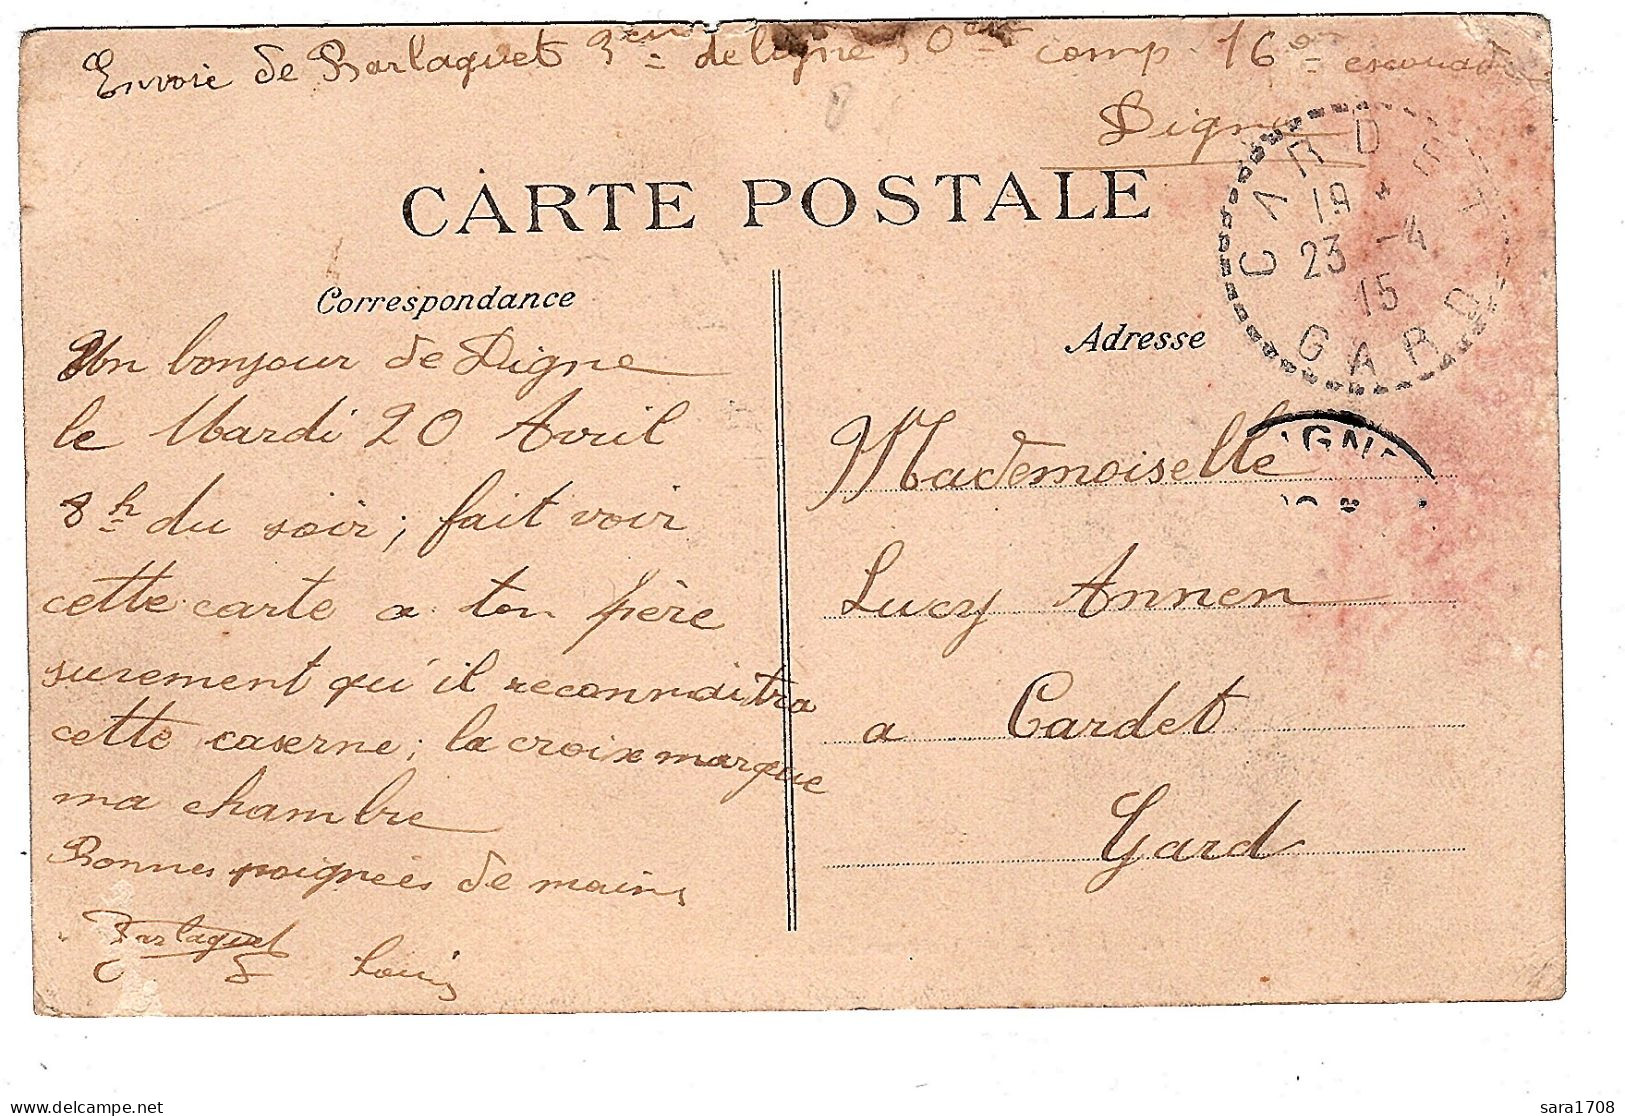 Envoie de Barlaguet 3em de ligne 30em comp. 16em escouade
Digne
CARTE POSTALE
CARDET
19 *
23 -4
15
GARD
Correspondance
Un bonjour de Digne
le Mardi 20 Avril
8h du soir; fait voir
cette carte a ton père
surement qu'il reconnaitra
cette caserne; la croix marque
ma chambre
Bonnes poignées de mains
Barlaguet Louis
Adresse
IGNE
Mademoiselle
Lucy Annen
a Cardet
Gard
delcampe.net
sara1708